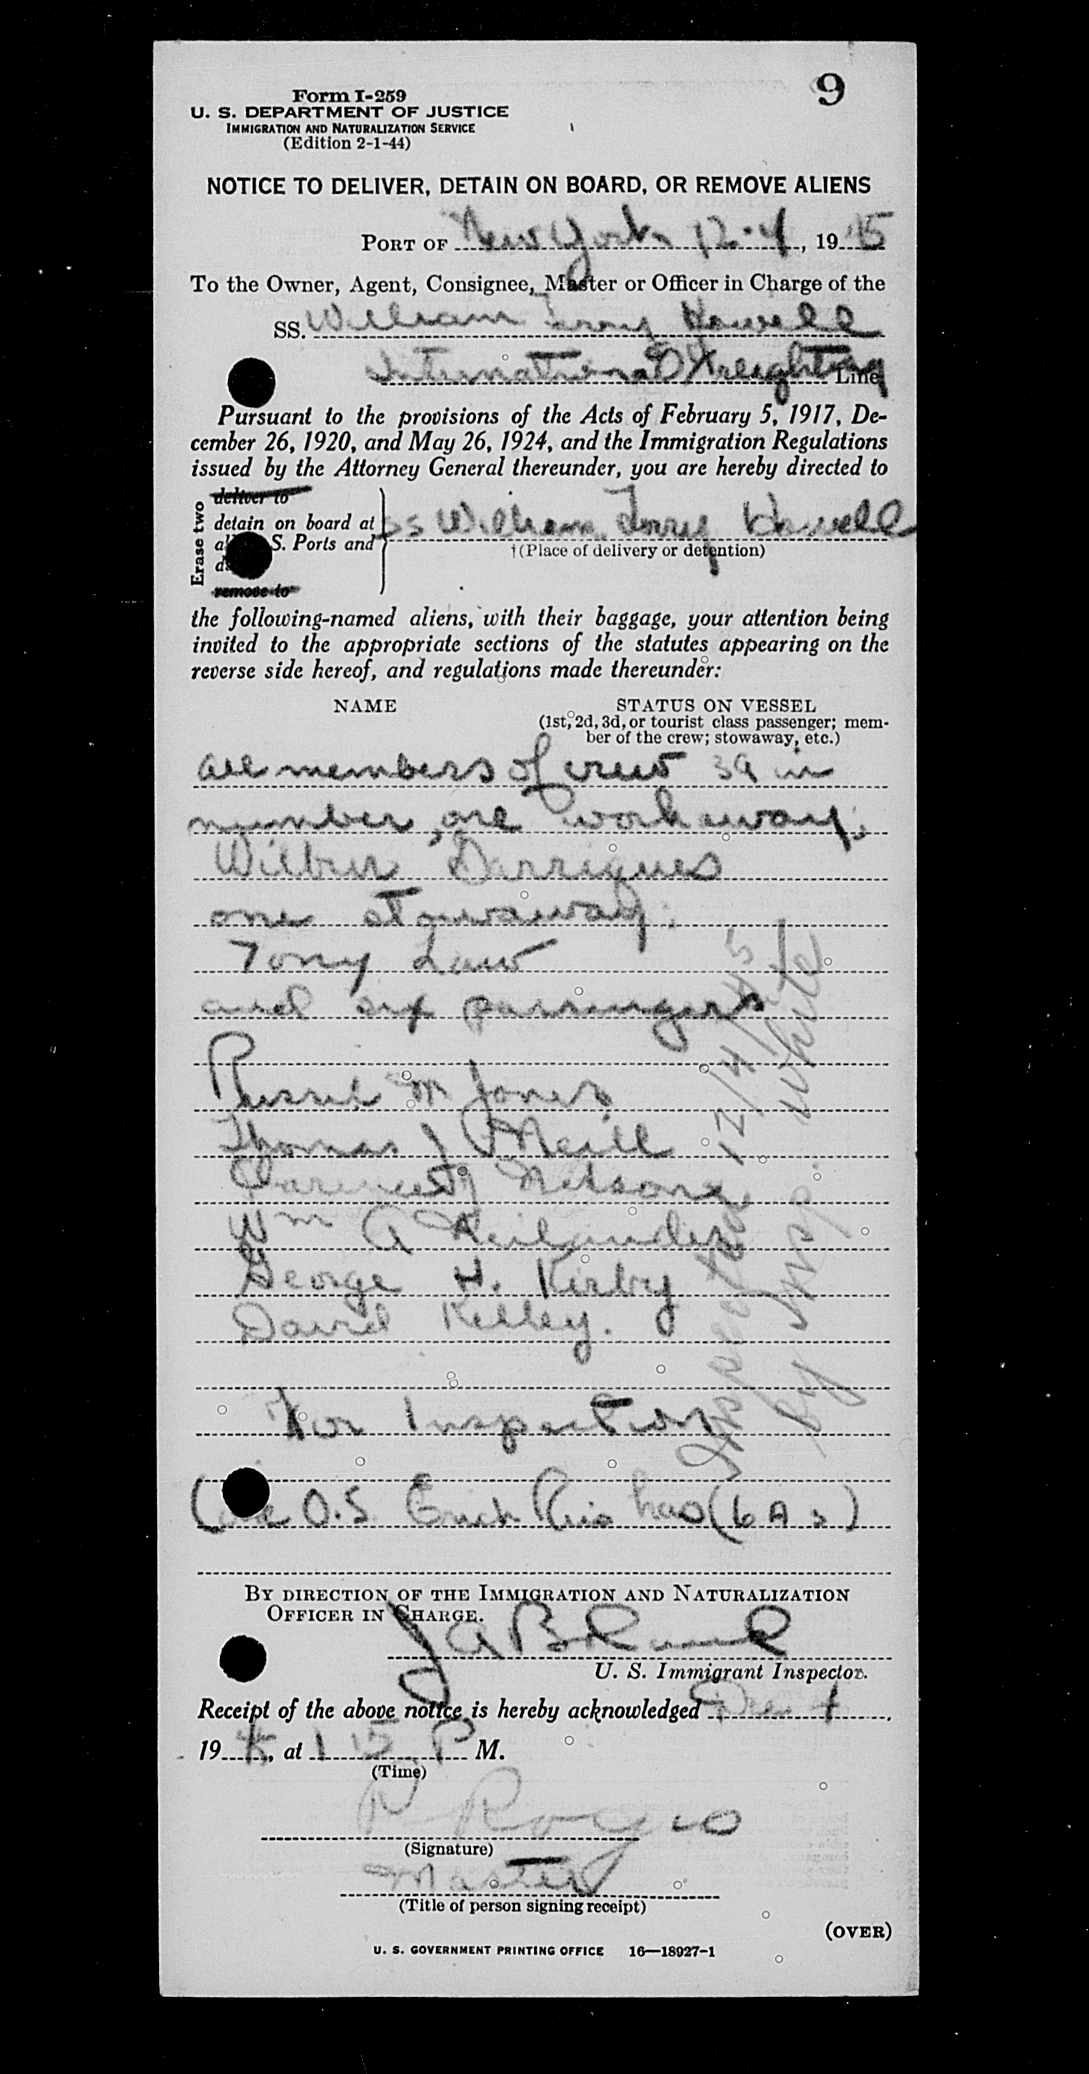 9
Form I-259
U. S. DEPARTMENT OF JUSTICE
IMMIGRATION AND NATURALIZATION SERVICE
(Edition 2-1-44)
NOTICE TO DELIVER, DETAIN ON BOARD, OR REMOVE ALIENS
PORT OF New York 12-4, 1945
To the Owner, Agent, Consignee, Master or Officer in Charge of the
SS. William Terry Howell
International Freighting Line
Pursuant to the provisions of the Acts of February 5, 1917, De-
cember 26, 1920, and May 26, 1924, and the Immigration Regulations
issued by the Attorney General thereunder, you are hereby directed to
Erase two
deliver to
detain on board at
S. Ports and
remove to
SS William Terry Howell
†(Place of delivery or detention)
the following-named aliens, with their baggage, your attention being
invited to the appropriate sections of the statutes appearing on the
reverse side hereof, and regulations made thereunder:
NAME STATUS ON VESSEL
(1st, 2d, 3d, or tourist class passenger; mem-
ber of the crew; stowaway, etc.)
all members of crew 39 in
number, one workaway;
Wilbur Darrigues
one stowaway;
Tony Law
and six passengers
Russel M Jones
Thomas J O'Neill
Clarence Nelson
Wm A
George H. Kirby
David Kelley.
For Inspection
Inspected 12/4/45
by Insp. White
O.S. has (6 A s)
BY DIRECTION OF THE IMMIGRATION AND NATURALIZATION
OFFICER IN CHARGE.
J A
U. S. Immigrant Inspector.
Receipt of the above notice is hereby acknowledged Dec 4,
1945, at 1 15 P M.
(Time)
P
(Signature)
Master
(Title of person signing receipt)
(OVER)
U. S. GOVERNMENT PRINTING OFFICE 16—18927-1